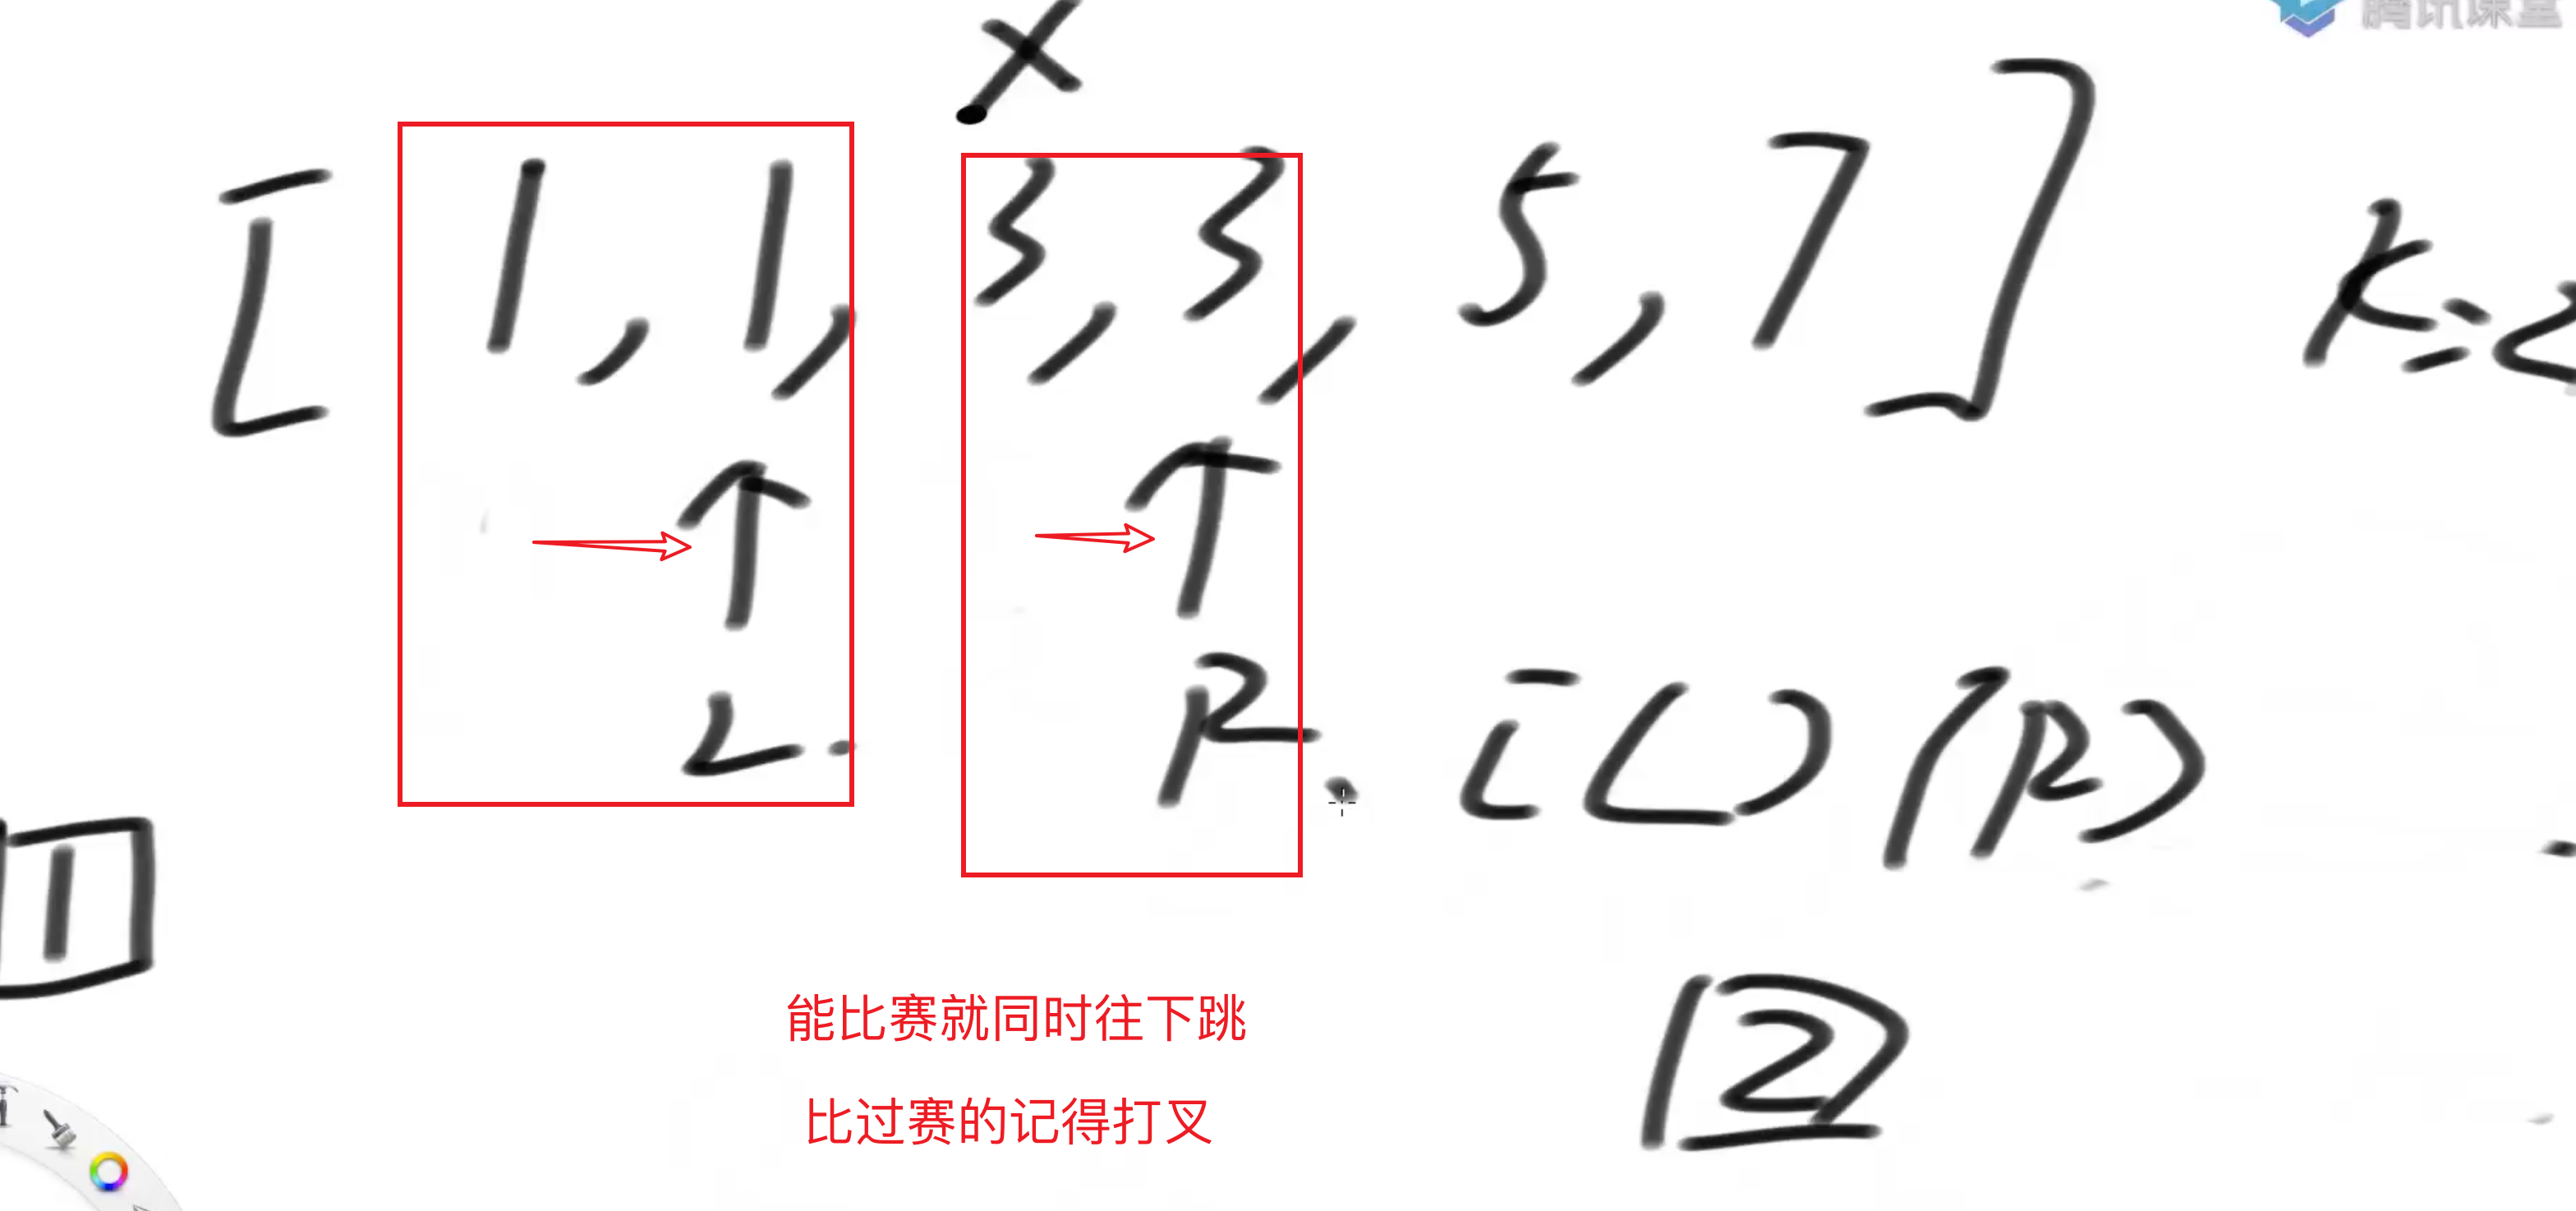 腾讯课堂
X
[ 1, 1, 3, 3, 5, 7 ] k=2
L. R. [L] (R)
1
2
能比赛就同时往下跳
比过赛的记得打叉